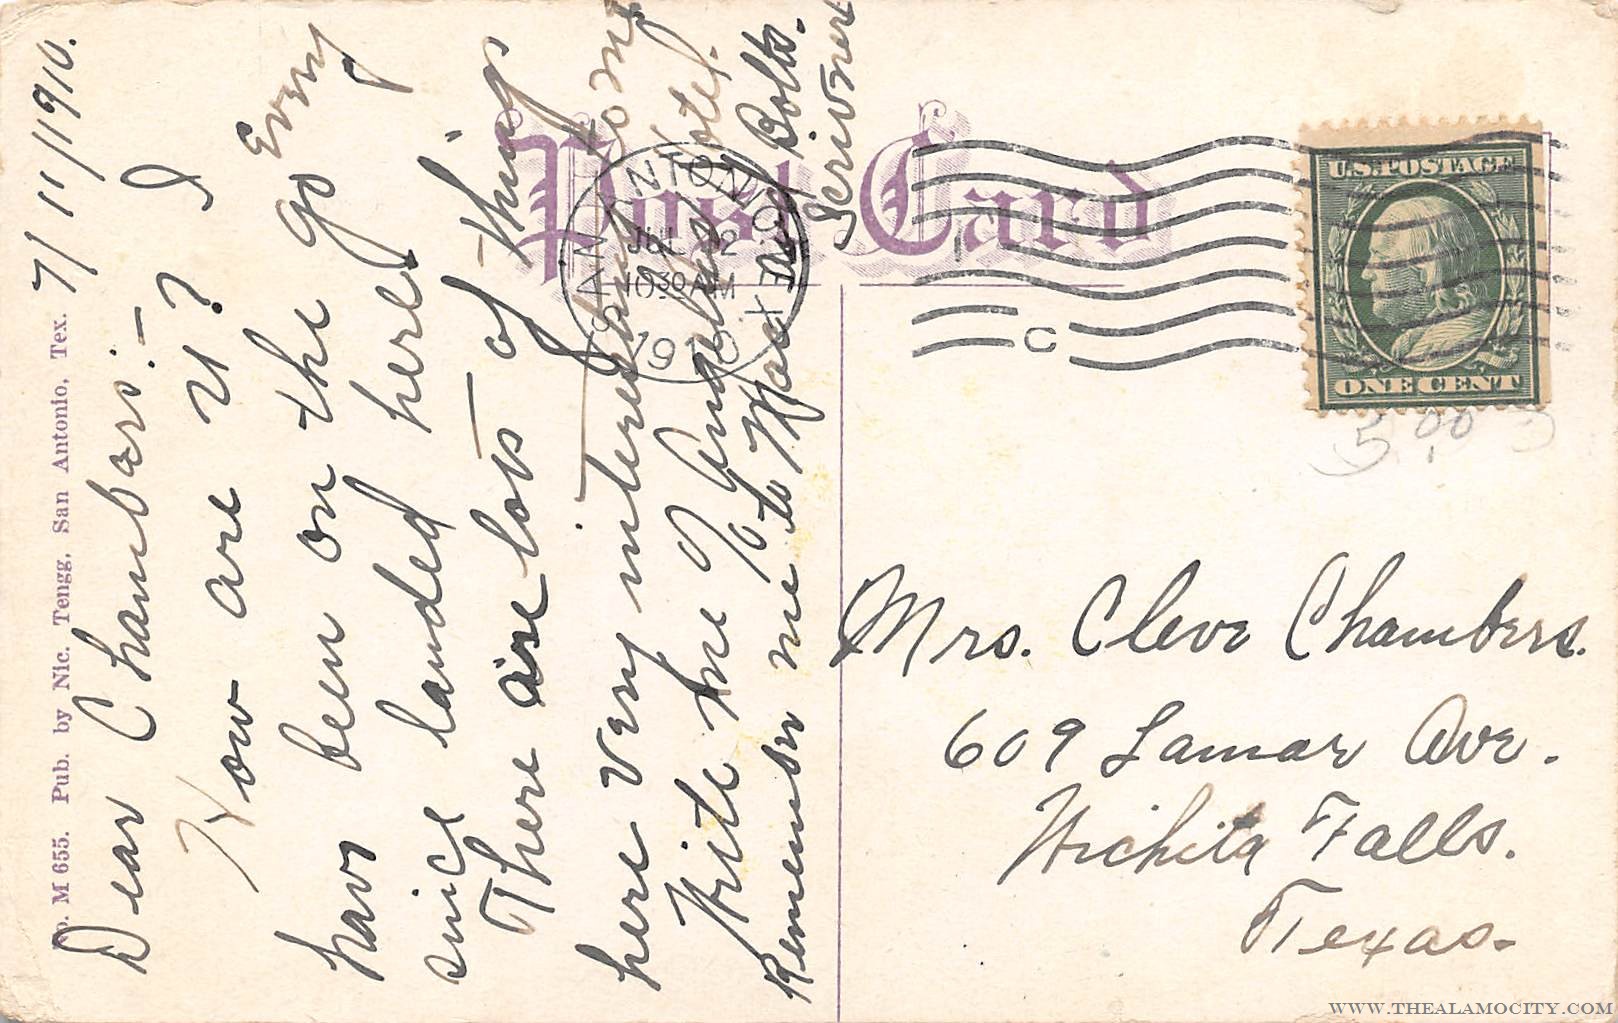 No. M 655. Pub. by Nic. Tengg, San Antonio, Tex.
7/11/1910.
Dear Chambers:-
How are u? I
have been on the go Every
since landed here.
There are lots of things
here very interesting
Write me % Angelus Hotel.
Remember me to Max & Bolts.
Scrivner
Post Card
SAN ANTONIO TEX
JUL 12
10 30 AM
1910
C
U.S. POSTAGE
ONE CENT
5.00
Mrs. Cleve Chambers.
609 Lamar Ave.
Wichita Falls.
Texas.
WWW.THEALAMOCITY.COM